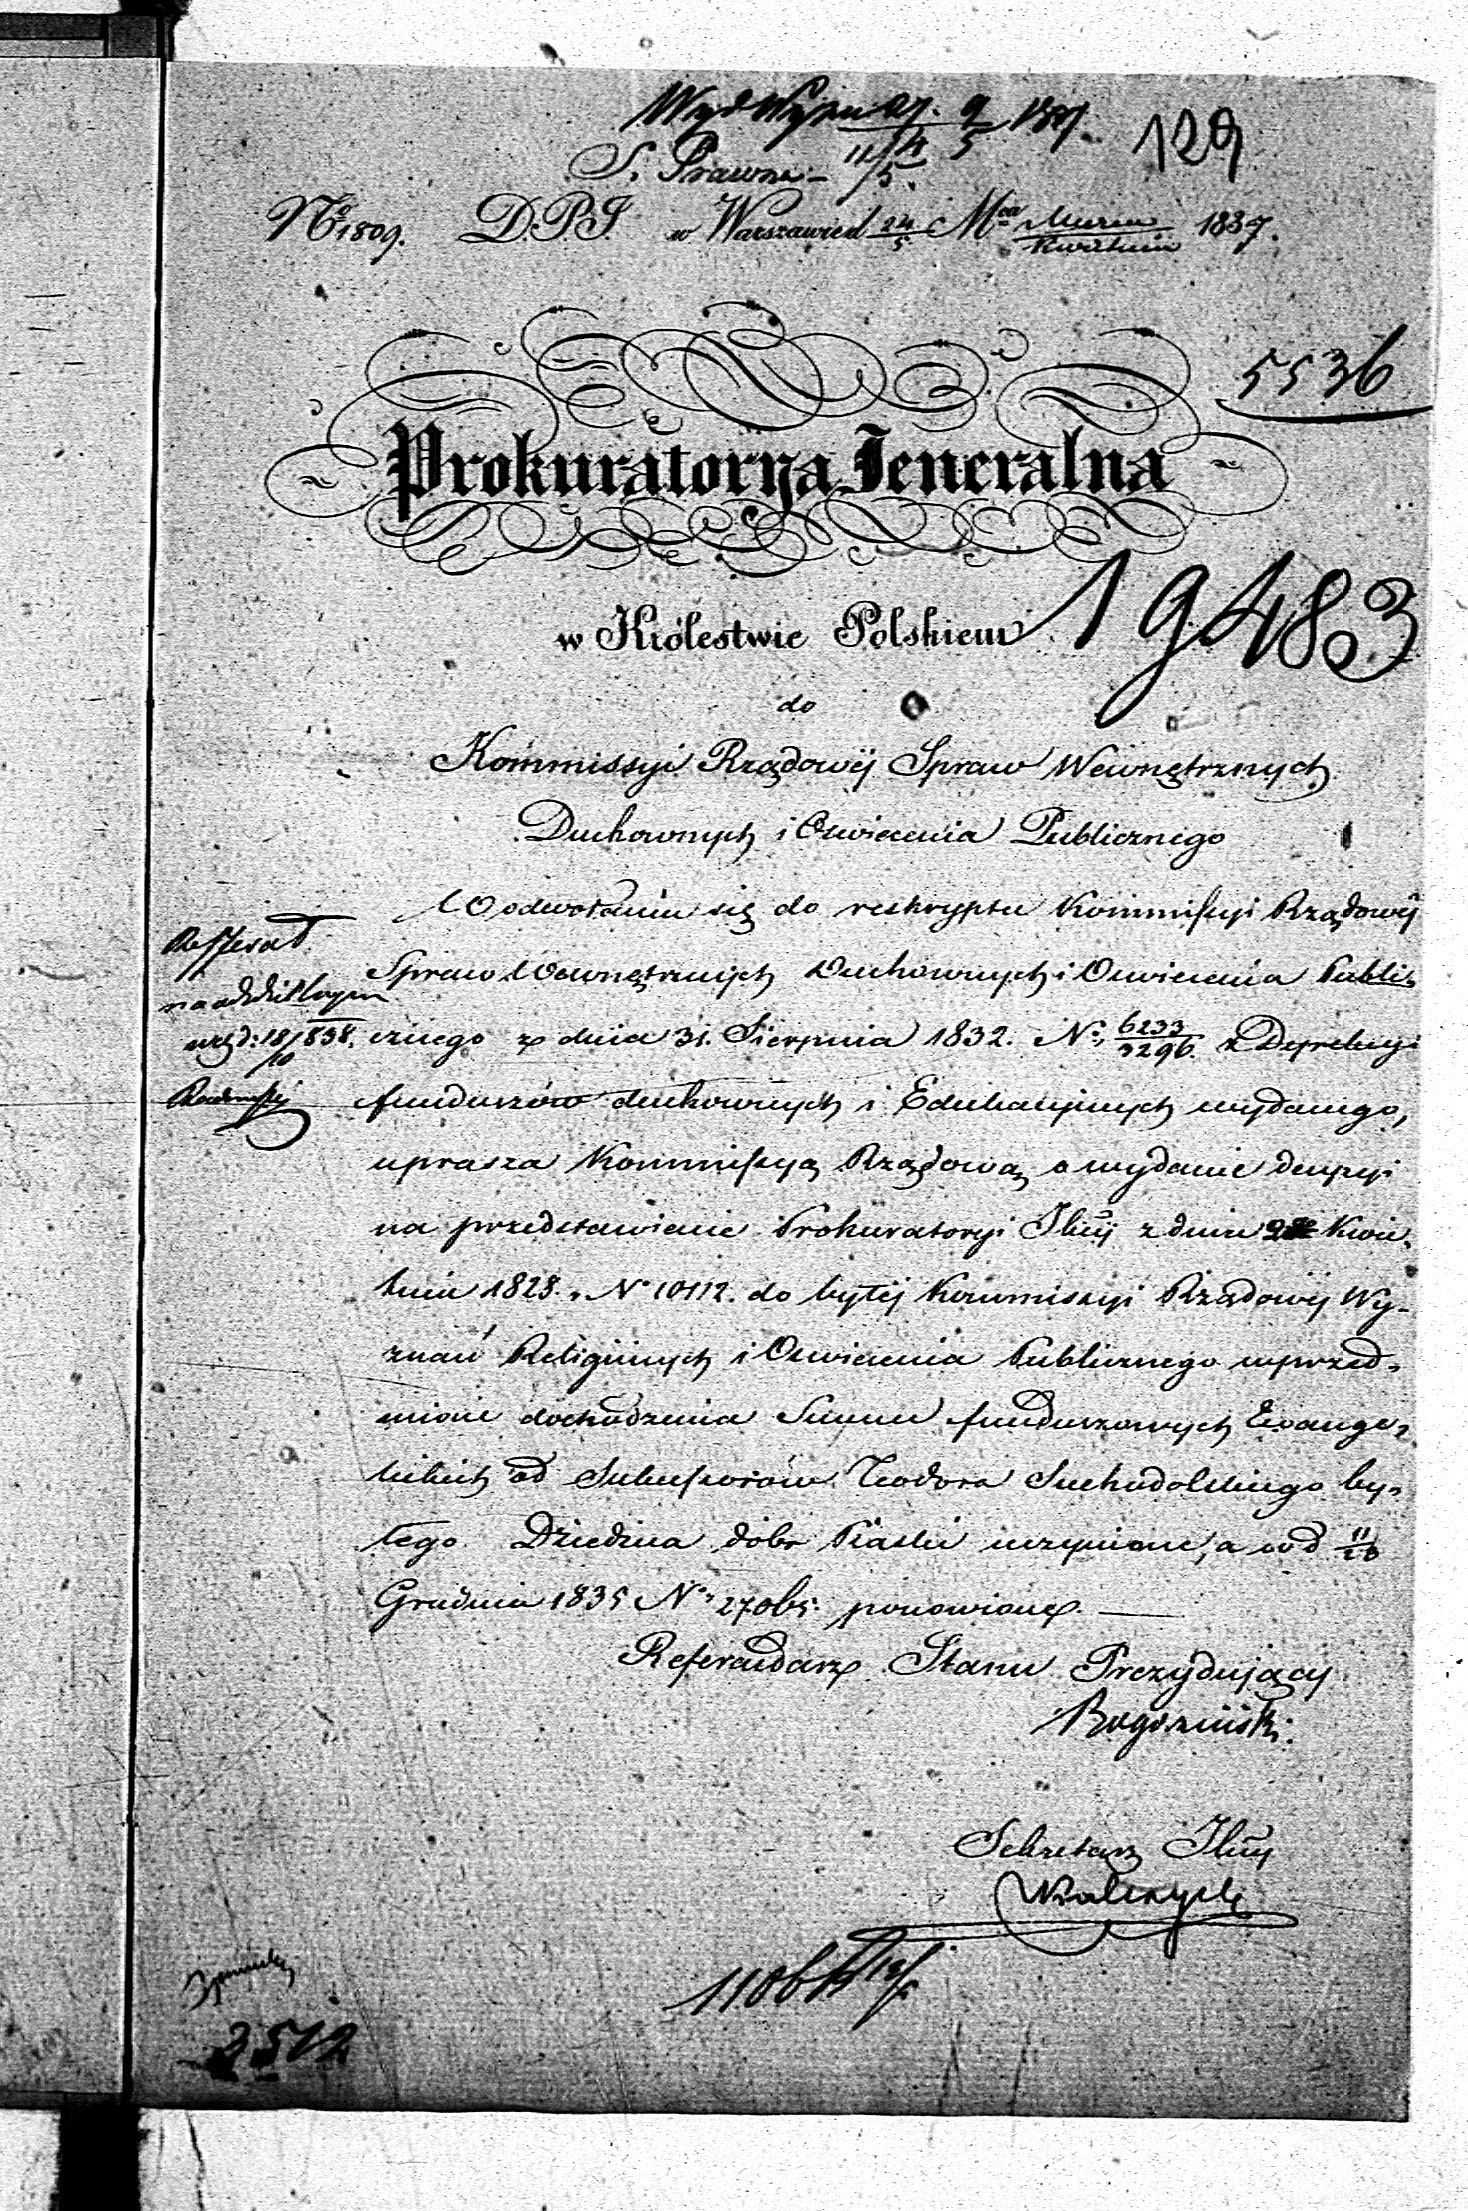 129
S. Prawna 11/5
No 1809. D.P.J. w Warszawie d 24/5 Mca Marca/Kwietnia 1837.
5536
Prokuratorya Jeneralna
w Królestwie Polskiem
19483
do
Kommissyi Rządowéj Spraw Wewnętrznych
Duchownych i Oświecenia Publicznego
W odwołaniu się do reskryptu Kommissyi Rządowéj
Spraw Wewnętrznych Duchownych i Oświecenia Publi-
cznego z dnia 31. Sierpnia 1832. No 6233/3296. z Dyrekcyi
funduszów duchownych i Edukacyjnych wydanego,
uprasza Kommissyą Rządową o wydanie decyzyi
na przedstawienie Prokuratoryi Jlnéj z dnia Kwie-
tnia 1828. No 10112. do byłéj Kommissyi Rządowéj Wy-
znań Religijnych i Oświecenia Publicznego w przed-
miocie dochodzenia Summ funduszowych Ewange-
lickich od Sukcessorów Teodora Suchodolskiego by-
łego Dziedzica dóbr Piaski uczynione, a pod 11/23
Grudnia 1835 No 27065. ponowione.
Referat
na oddzielnym
18/10 838.
Referendarz Stanu Prezydujący
Sekretarz Jlny
2512